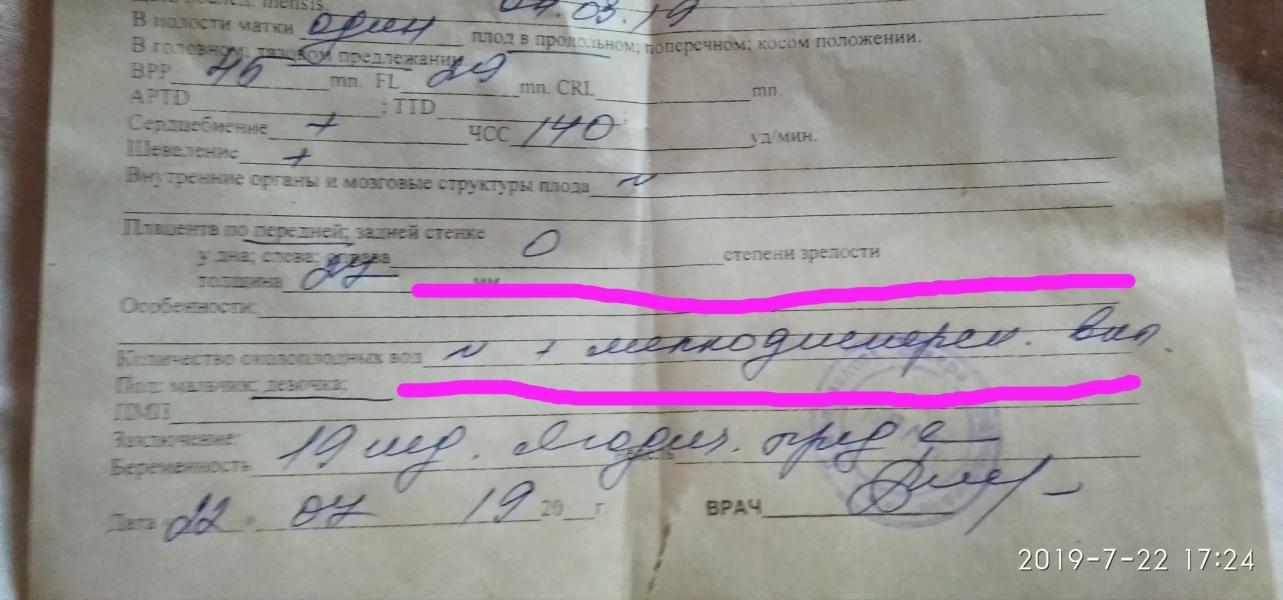 mensis. 04.03.19
В полости матки один плод в продольном; поперечном; косом положении.
В головном; тазовом предлежании
BPP 46 mn. FL 29 mn. CRL mn.
APTD ; TTD ;
Сердцебиение + ЧСС 140 уд/мин.
Шевеление +
Внутренние органы и мозговые структуры плода N
Плацента по передней; задней стенке
у дна; слева; справа 0 степени зрелости
толщина 27 мм
Особенности:
Количество околоплодных вод N + мелкодисперсн. вкл.
Пол: мальчик; девочка;
ПМП
Заключение:
Беременность 19 нед. Ягодич. пред е
Дата 22 07 19 20 г. ВРАЧ
2019-7-22 17:24